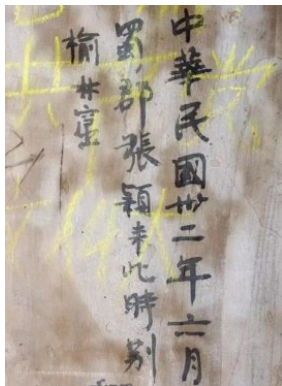 中華民國卅二年六月
蜀郡張穎来此時别
榆林窟